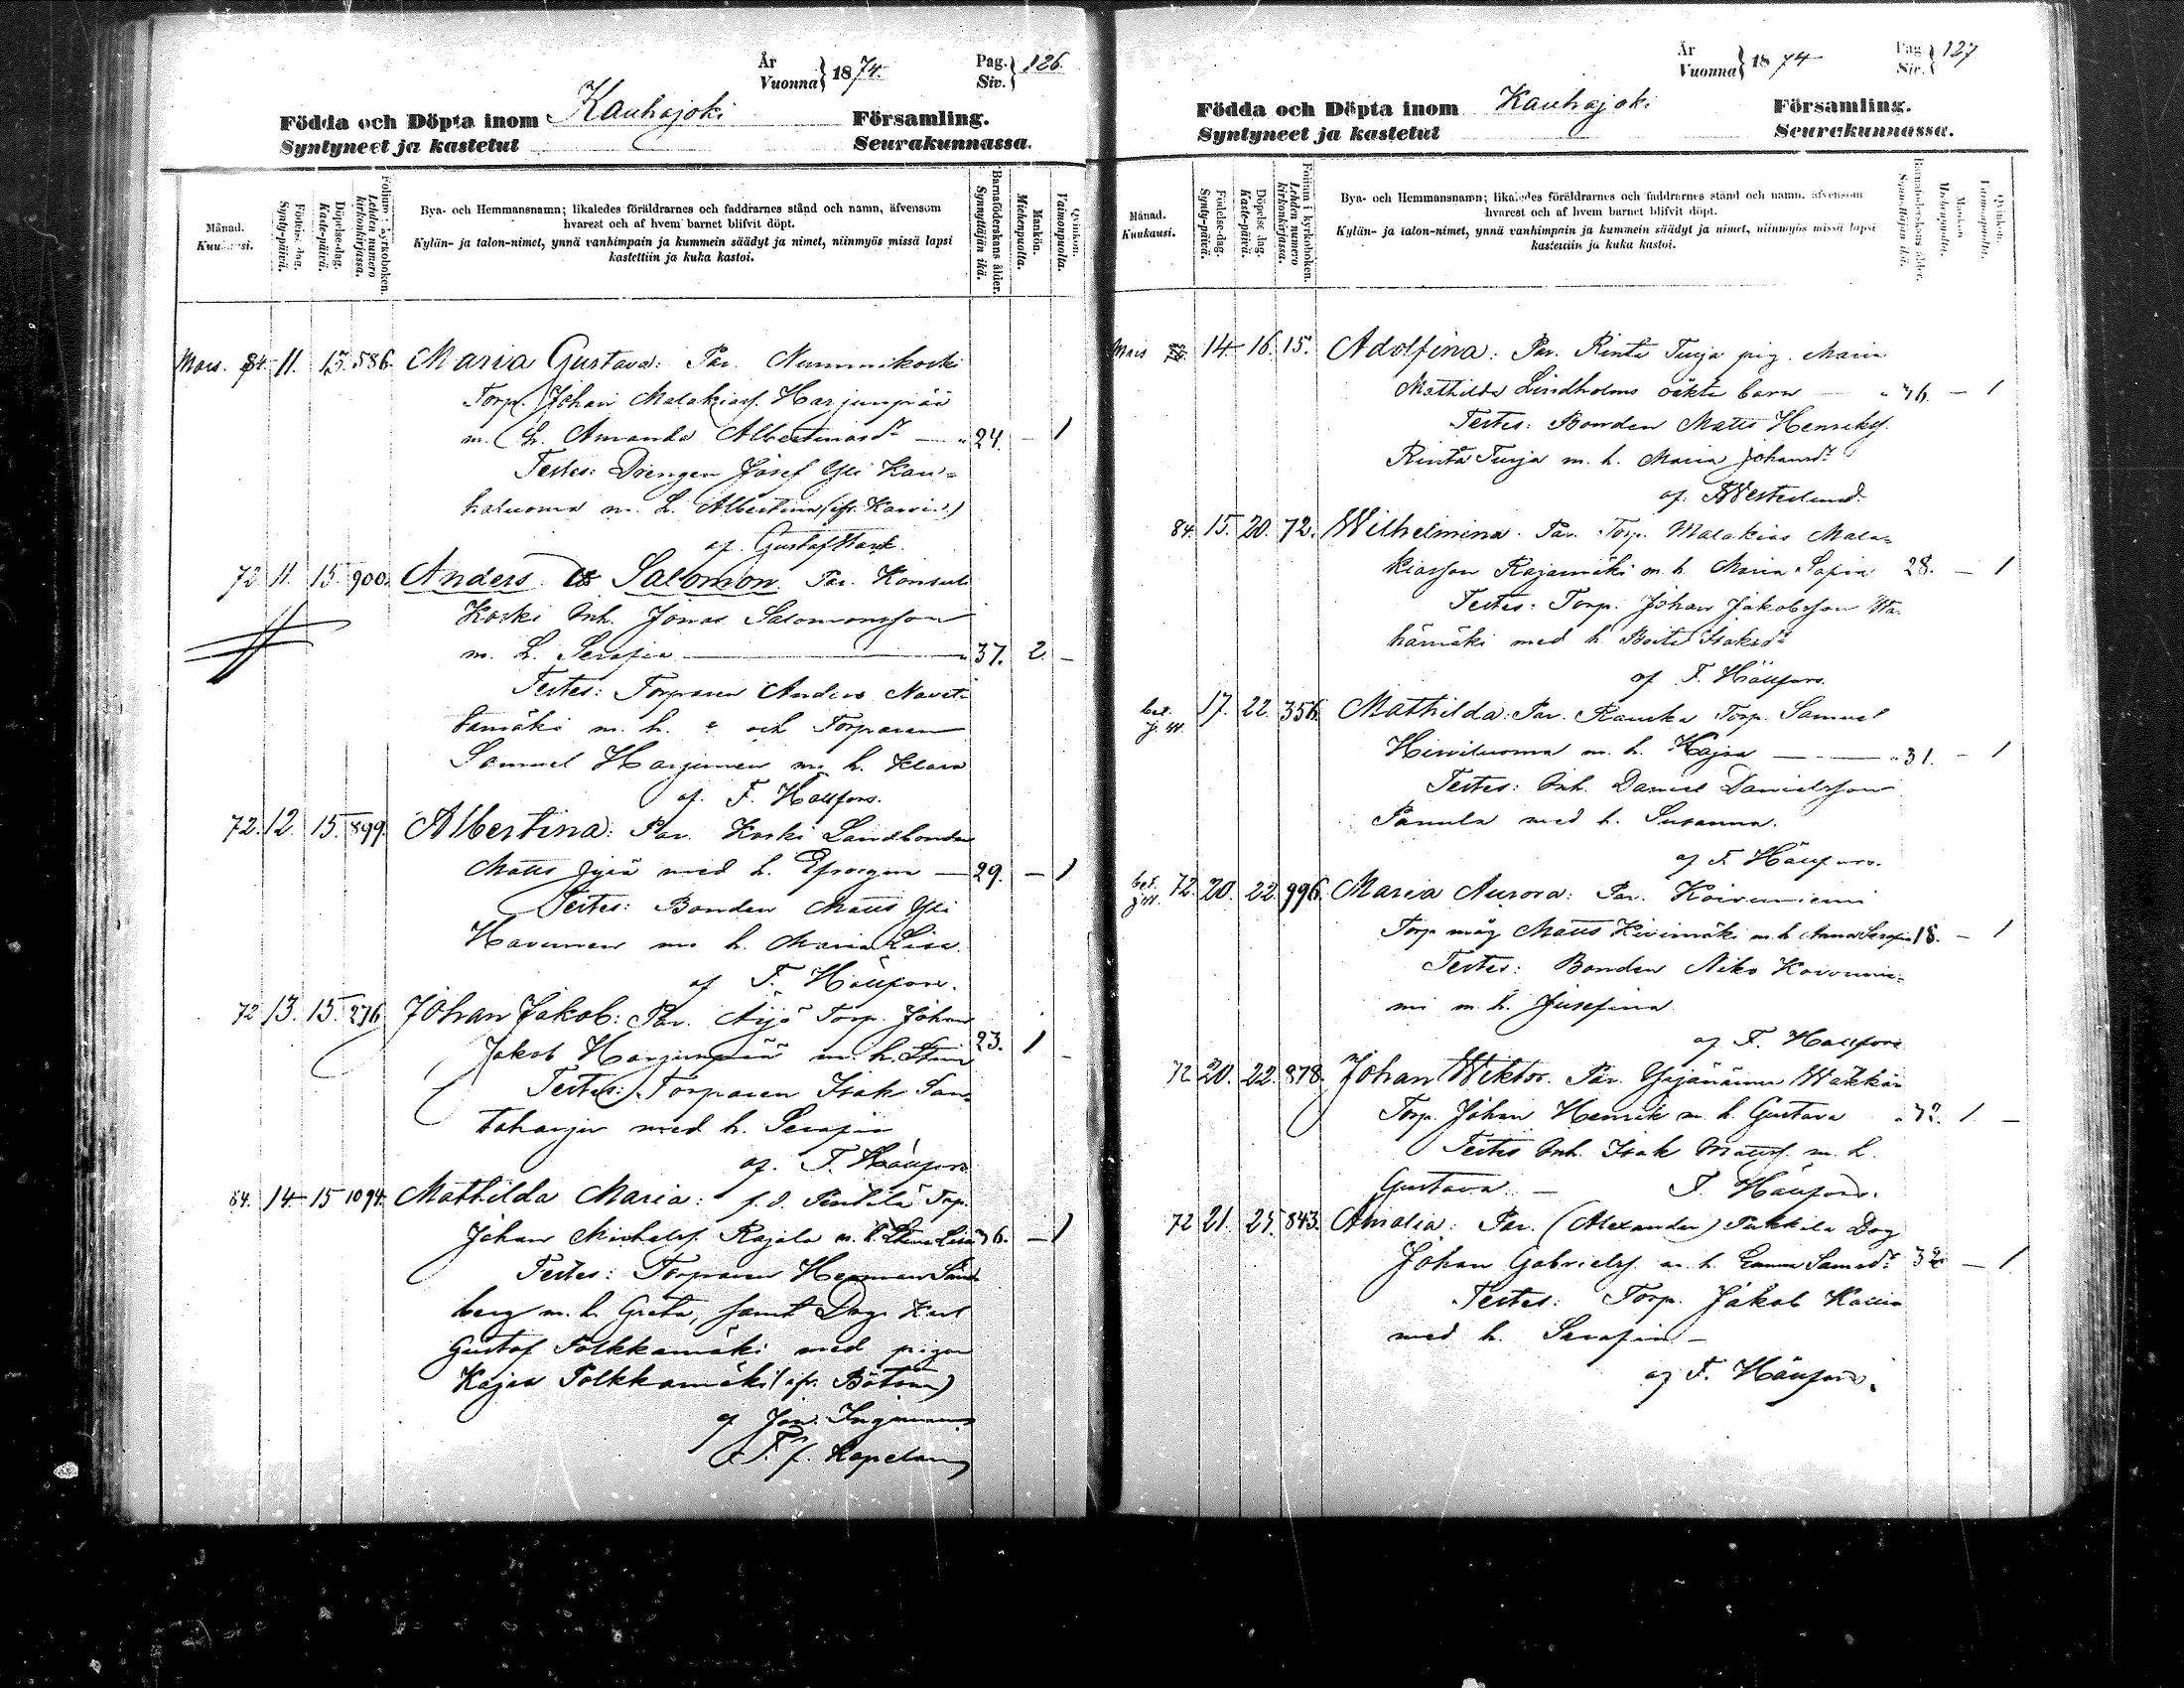 År
Vuonna } 1874.
Pag.
Siv. } 126.
Födda och Döpta inom Kauhajoki Församling.
Syntyneet ja kastetut Seurakunnassa.
Månad.
Kuukausi.
Födelse-dag.
Synty-päivä.
Döpelse-dag.
Kaste-päivä.
Folium i kyrkoboken.
Lehden numero kirkonkirjassa.
Bya- och Hemmansnamn; likaledes föräldrarnes och faddrarnes stånd och namn, äfvensom
hvarest och af hvem barnet blifvit döpt.
Kylän- ja talon-nimet, ynnä vanhimpain ja kummein säädyt ja nimet, niinmyös missä lapsi
kastettiin ja kuka kastoi.
Barnaföderskans ålder.
Synnyttäjän ikä.
Mankön.
Miehenpuolta.
Qvinkön.
Vaimonpuolta.
Mars. 84. 11. 15. 586. Maria Gustava: Par. Nummikoski
Torp. Johan Malakiass. Harjunpää
m. h. Amanda Albertinasdr 24. – 1
Testes: Drengen Josef Yli Kau=
haluoma m. h. Albertina
af Gustaf
72 11. 15. 900. Anders & Salomon Par.
Koski Inh. Jonas Salomonsson
m. h. Serafia 37. 2. –
Testes: Torparen Anders
m. h. och Torparen
Samuel Harjunen m. h. Klara
af. F. Hällfors.
72. 12. 15. 899. Albertina: Par. Koski Landbonden
Matts med h. Efrosyna 29. – 1
Testes: Bonden Matts Yli
Havunen m. h. Maria Lisa.
af F. Hällfors.
72 13. 15. 276. Johan Jakob: Par. Äijö Torp. Johan
Jakob Harjunpää m. h. 23. 1 –
Testes: Torparen Isak San=
taharju med h. Serafia
af. F. Hällfors
84. 14 15 1094. Mathilda Maria: Penttilä Torp.
Johan Michelss. Rajala m. h. Lisa 36. – 1
Testes: Torparen Herman Sand
berg m. h. Greta, samt Drg. Karl
Gustaf Polkkamäki med pigan
Kajsa Polkkamäki
af Jon. Ingman
T. f. Kapelan
År
Vuonna } 1874
Pag.
Siv. } 127
Födda och Döpta inom Kauhajoki Församling.
Syntyneet ja kastetut Seurakunnassa.
Månad.
Kuukausi.
Födelse-dag.
Synty-päivä.
Döpelse-dag.
Kaste-päivä.
Folium i kyrkoboken.
Lehden numero kirkonkirjassa.
Bya- och Hemmansnamn; likaledes föräldrarnes och faddrarnes stånd och namn, äfvensom
hvarest och af hvem barnet blifvit döpt.
Kylän- ja talon-nimet, ynnä vanhimpain ja kummein säädyt ja nimet, niinmyös missä lapsi
kastettiin ja kuka kastoi.
Barnaföderskans ålder.
Synnyttäjän ikä.
Mankön.
Miehenpuolta.
Qvinkön.
Vaimonpuolta.
Mars 14 16. 15. Adolfina: Par. Rinta Turja pig. Maria
Mathilda Lindholms oäkta barn 36. – 1
Testes: Bonden Matts Henrikss.
Rinta Turja m. h. Maria Johansdr
af. Westerlund.
84. 15. 20. 72. Wilhelmina. Par. Torp. Malakias Mala=
kiasson Rajamäki m. h. Maria Sofia 28. – 1
Testes: Torp. Johan Jakobsson
med h. Isaksdr
af F. Hällfors.
17. 22. 356. Mathilda: Par. Torp. Samuel
Hirviluoma m. h. Kajsa 31. – 1
Testes: Inh. Daniel Danielsson
Panula med h. Susanna.
af F. Hällfors.
72. 20. 22. 996. Maria Aurora: Par. Koivuniemi
Torp. måg Matts Kivimäki m. h. Anna Serafia 18. – 1
Testes: Bonden Koivunie=
mi m. h. Josefina
af F. Hällfors
72 20. 22. 878. Johan Wiktor. Par.
Torp. Johan Henrik m. h. Gustava 1. –
Testes Inh. Isak Mattss. m. h.
Gustava. – F. Hällfors.
72 21. 25. 843. Amalia: Par. (Alexander) Drg
Johan Gabrielss. m. h. Samsdr. – 1
Testes: Torp. Jakob
med h. Serafia –
af F. Hällfors.